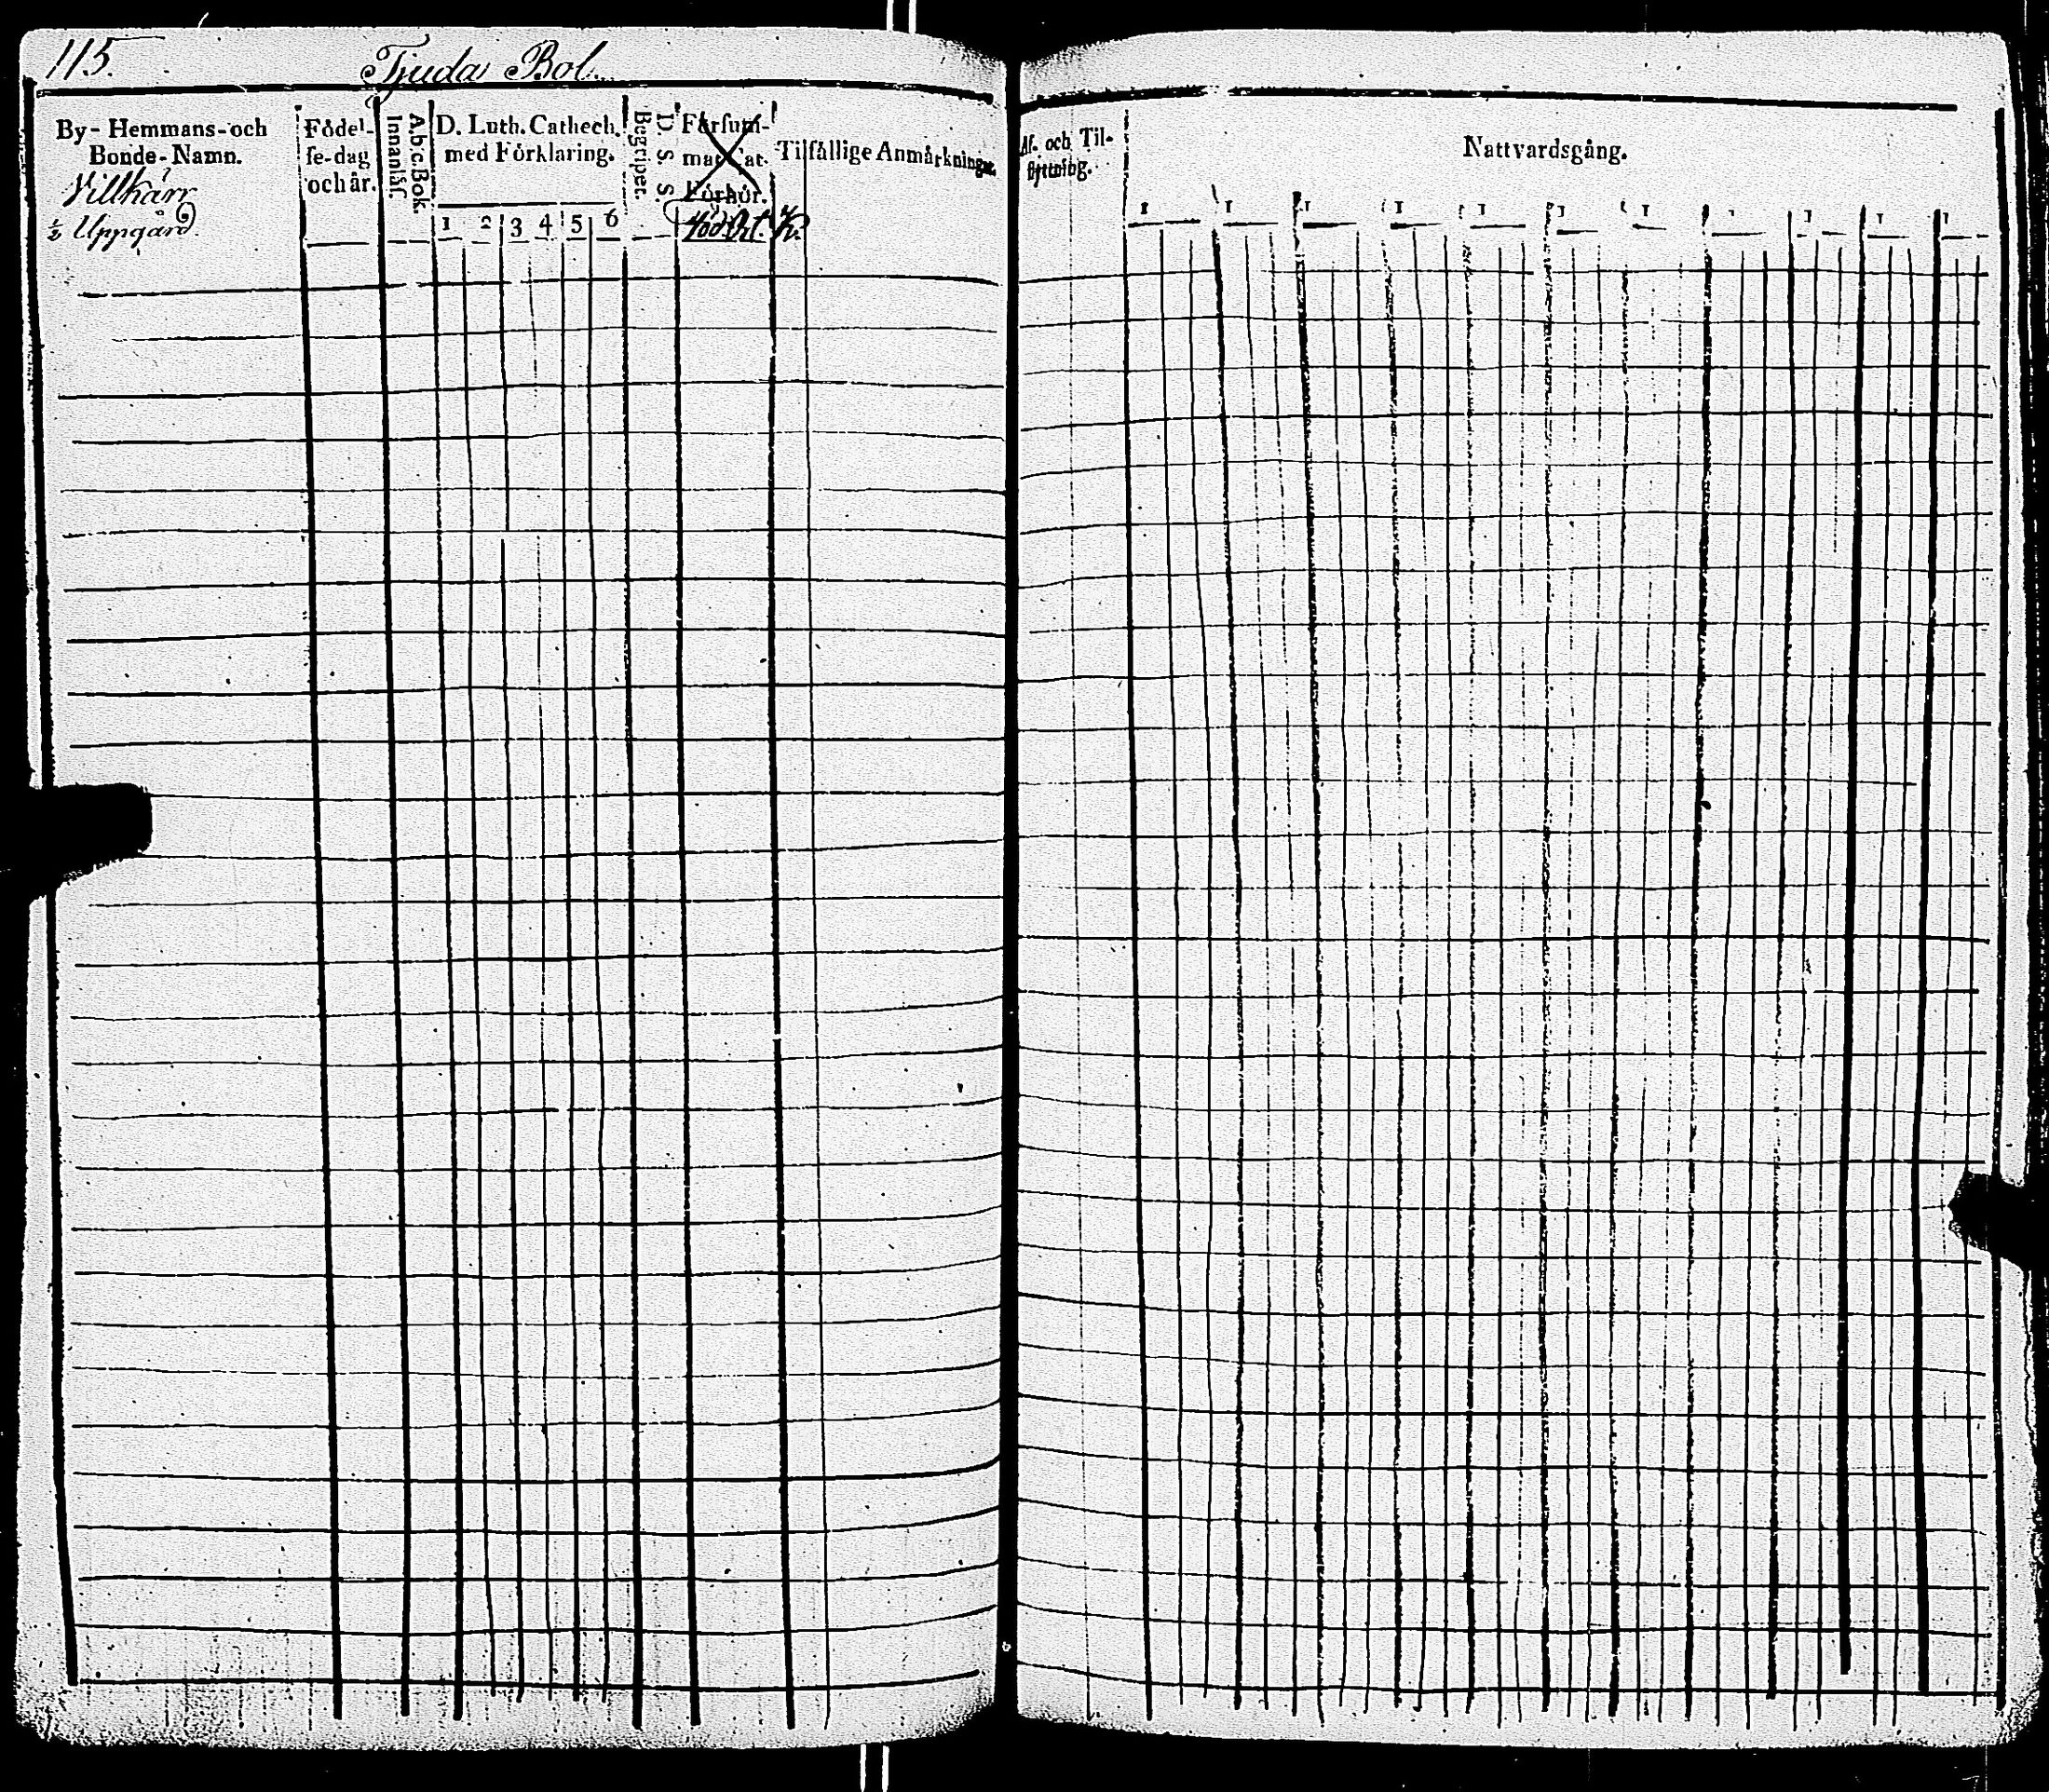 115.
Tjuda Bol.
By- Hemmans- och
Bonde-Namn.
Villkärr
½ Uppgård.
Födel-
se-dag
och år.
A.b.c.Bok.
Innanläs.
D. Luth. Cathech.
med Förklaring.
1 2 3 4 5 6
D. S. S.
Begripet.
Försum-
mat Cat.
Förhör.
Tilfällige Anmärkningar.
Af- och Til-
flyttning.
Nattvardsgång.
1 1 1 1 1 1 1 1 1 1 1